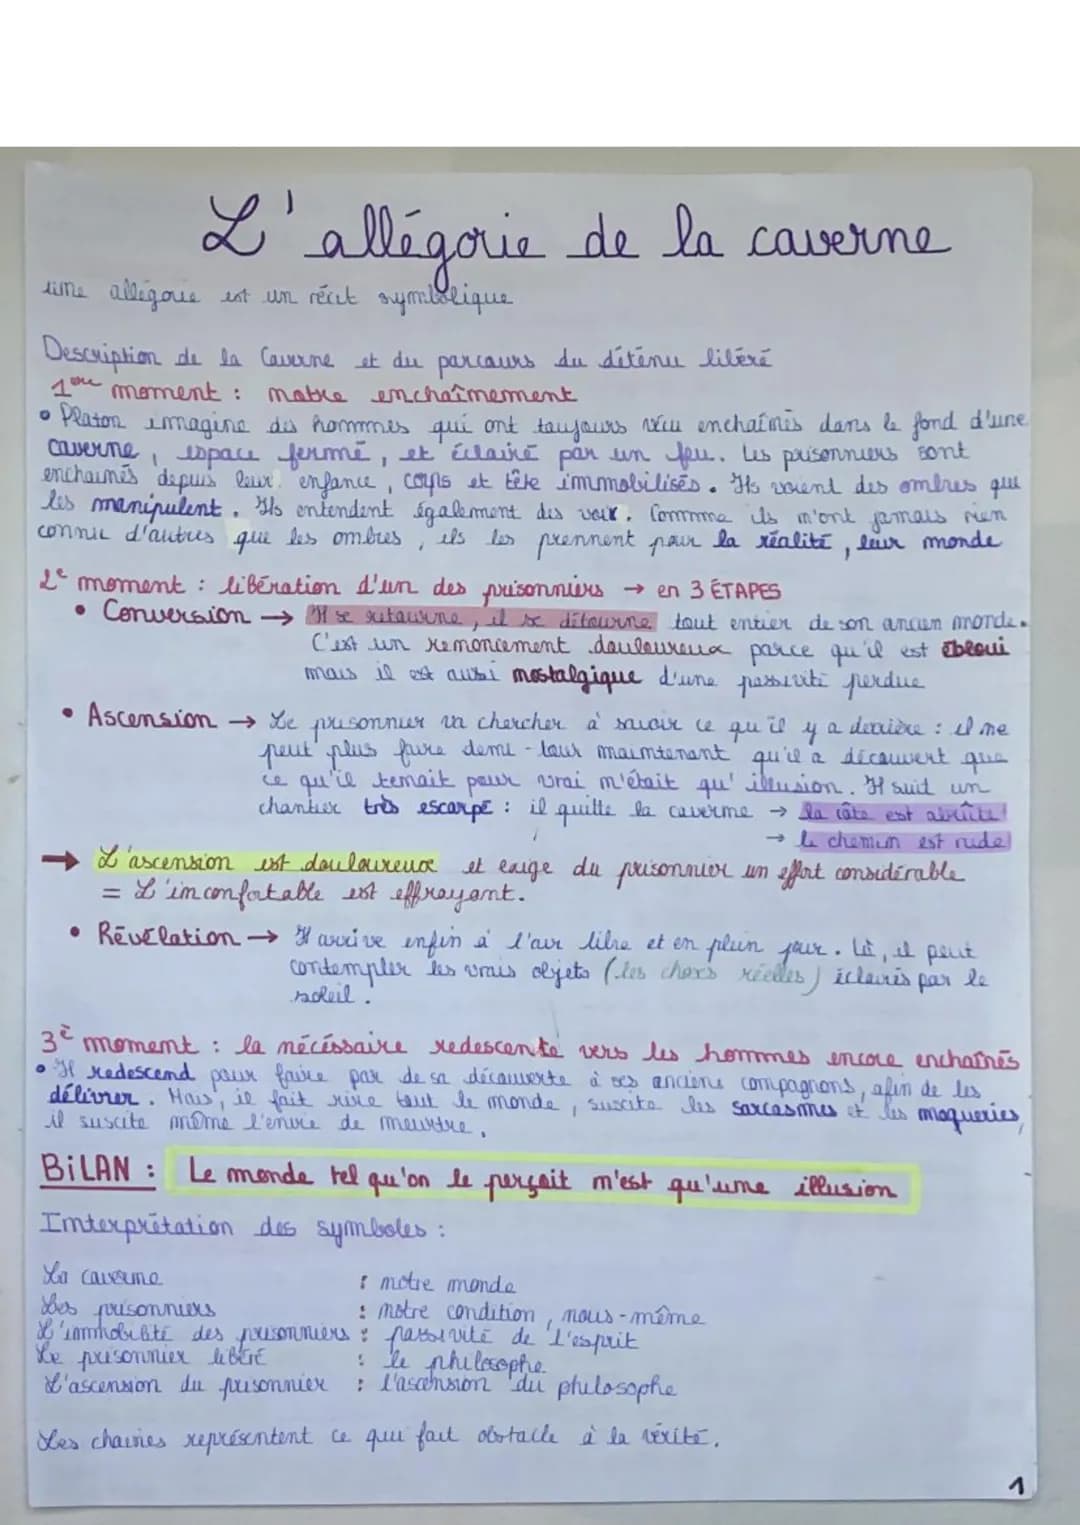 L'allégorie de la caverne
une allégorie est un récit symbolique
Description de la Caverne et du parcours du détenu libéré
1er moment : notre enchaînement
• Platon imagine des hommes qui ont toujours vécu enchaînés dans le fond d'une
caverne, espace fermé, et éclairé par un feu. Les prisonniers sont
enchainés depuis leur enfance, corps et tête immobilisés. Ils voient des ombres que
les manipulent. Ils entendent également des voix. Comme ils n'ont jamais rien
connu d'autres que les ombres, ils les prennent pour la réalité, leur monde
2e moment : libération d'un des prisonniers → en 3 ÉTAPES
• Conversion → Il se retourne, il se détourne tout entier de son ancien monde.
C'est un renoncement douloureux parce qu'il est ébloui
mais il est aussi nostalgique d'une passivité perdue
• Ascension → Le prisonnier va chercher à savoir ce qu'il y a derrière : il ne
peut plus faire demi-tour maintenant qu'il a découvert que
ce qu'il tenait pour vrai n'était qu'illusion. Il suit un
chantier très escarpé : il quitte la caverne → la côte est abrûte
→ le chemin est rude
→ L'ascension est douloureuse et exige du prisonnier un effort considérable
= L'inconfortable est effrayant.
• Révélation → Il arrive enfin à l'air libre et en plein jour. Là, il peut
contempler les vrais objets (les choses réelles) éclairés par le
soleil.
3è moment : la nécéssaire redescente vers les hommes encore enchaînés
• Il redescend pour faire par de sa découverte à ses anciens compagnons, afin de les
délivrer. Mais, il fait rire tout le monde, suscite les sarcasmes et les moqueries,
il suscite même l'envie de meurtre.
BiLAN : Le monde tel qu'on le perçoit n'est qu'une illusion
Interprétation des symboles :
La caverne : notre monde
Les prisonniers : notre condition, nous-même
L'immobilité des prisonniers : passivité de l'esprit
Le prisonnier libéré : le philosophe
L'ascension du prisonnier : l'ascension du philosophe
Les chaines représentent ce qui fait obstacle à la vérité.
1